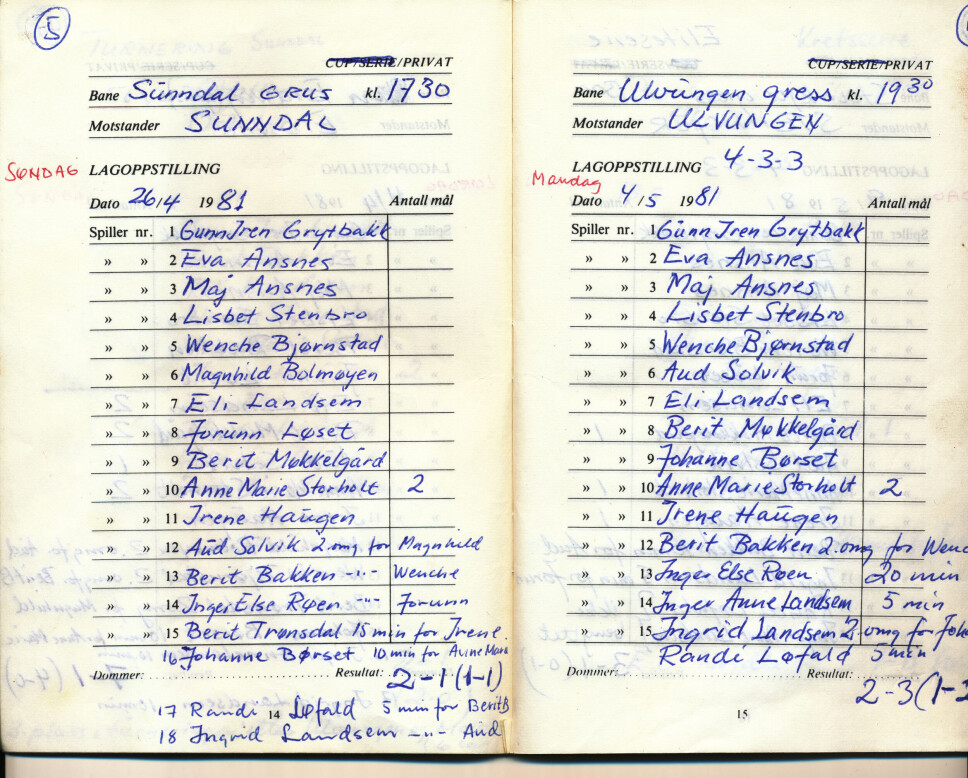 5
CUP/SERIE/PRIVAT
Bane Sunndal GRUS kl. 1730
Motstander SUNNDAL
SØNDAG LAGOPPSTILLING
Dato 26/4 1981 Antall mål
Spiller nr. 1 Gunn Iren Grytbakk
» » 2 Eva Ansnes
» » 3 Maj Ansnes
» » 4 Lisbet Stenbro
» » 5 Wenche Bjørnstad
» » 6 Magnhild Bolmøyen
» » 7 Eli Landsem
» » 8 Jorunn Løset
» » 9 Berit Møkkelgård
» » 10 Anne Marie Storholt 2
» » 11 Irene Haugen
» » 12 Aud Solvik 2.omg. for Magnhild
» » 13 Berit Bakken -"- Wenche
» » 14 Inger Else Røen -"- Jorunn
» » 15 Berit Trønsdal 15 min for Irene.
16 Johanne Børset 10 min for Anne Marie
Dommer: Resultat: 2-1 (1-1)
17 Randi Løfald 5 min for Berit B
14
18 Ingrid Landsem -"- Aud
CUP/SERIE/PRIVAT
Bane Ulvungen gress kl. 1930
Motstander ULVUNGEN
LAGOPPSTILLING 4-3-3
Mandag
Dato 4/5 1981 Antall mål
Spiller nr. 1 Gunn Iren Grytbakk
» » 2 Eva Ansnes
» » 3 Maj Ansnes
» » 4 Lisbet Stenbro
» » 5 Wenche Bjørnstad
» » 6 Aud Solvik
» » 7 Eli Landsem
» » 8 Berit Møkkelgård
» » 9 Johanne Børset
» » 10 Anne Marie Storholt 2
» » 11 Irene Haugen
» » 12 Berit Bakken 2.omg for Wenc
» » 13 Inger Else Røen 20 min
» » 14 Inger Anne Landsem 5 min
» » 15 Ingrid Landsem 2.omg for Joh
Randi Løfald 5 min
Dommer: Resultat:
2-3 (1-
15